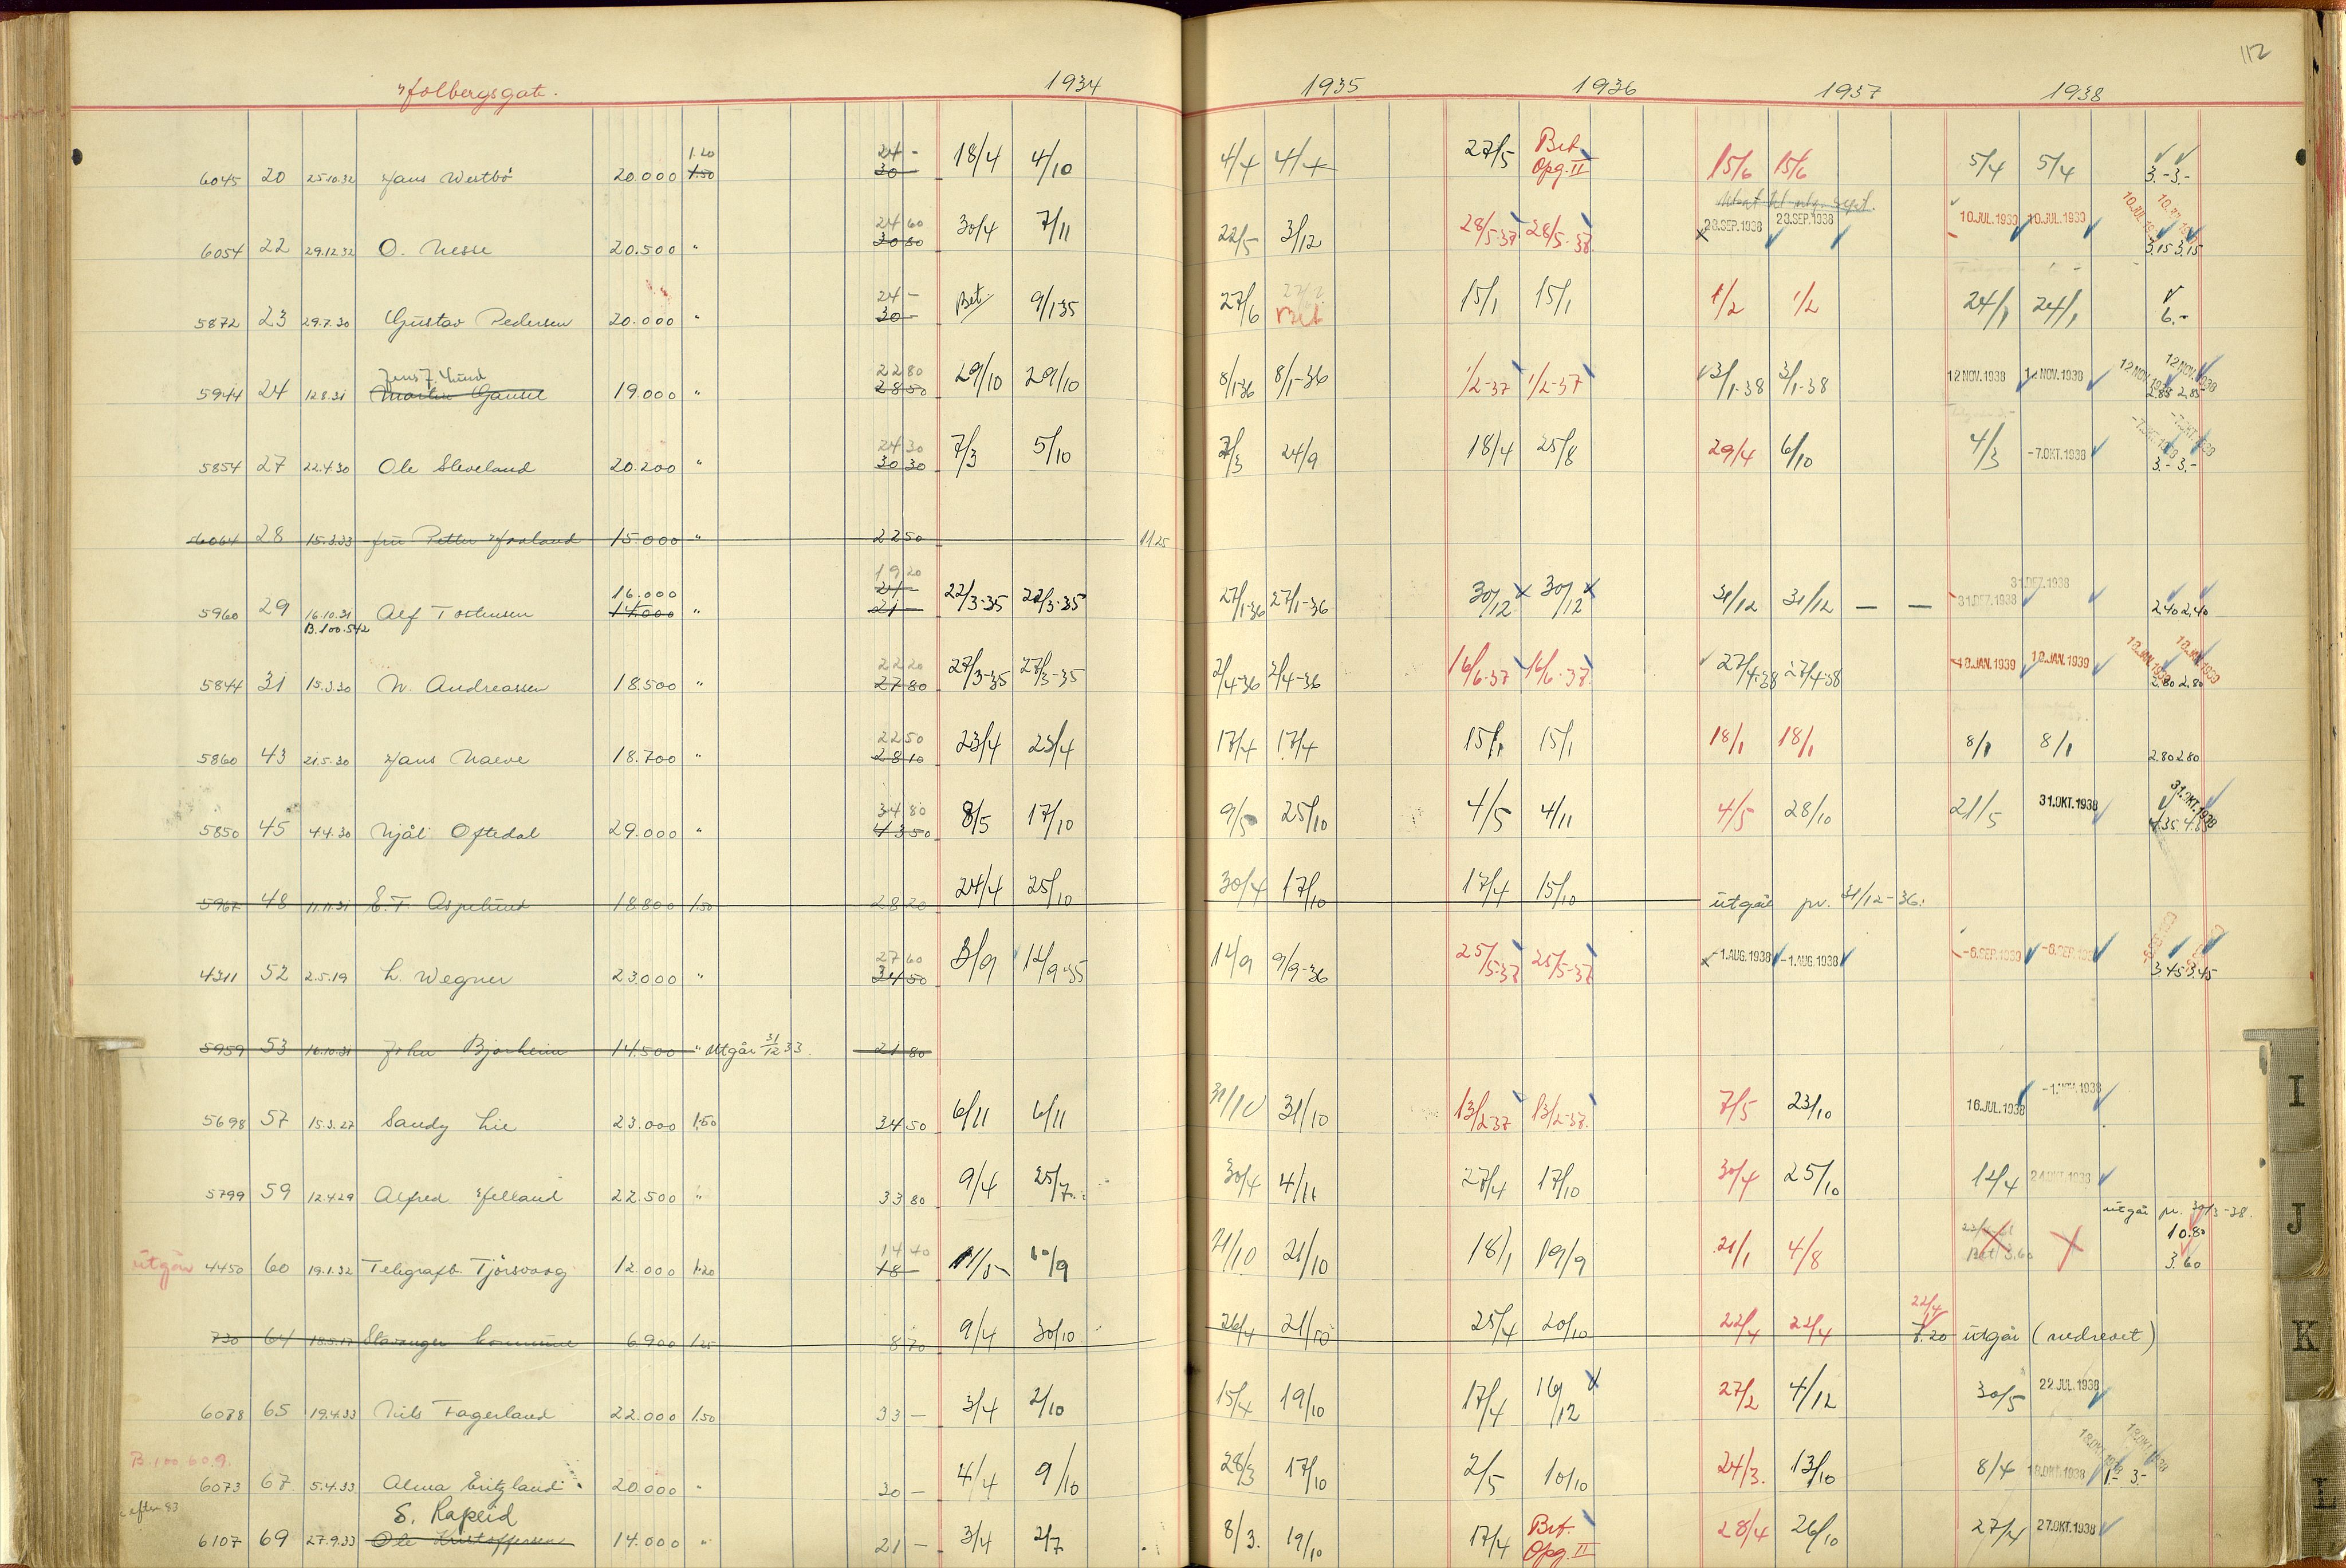 112
Holbergsgate. 1934 1935 1936 1937 1938
6045 20 25.10.32 Hans Westbö 20.000 1.20 1.50 24 - 30 - 18/4 4/10 4/4 4/4 27/5 Bet. Opg. II 15/6 15/6 5/4 5/4 3.- 3.-
6054 22 29.12.32 O. Nesse 20.500 " 24 60 30 80 30/4 7/11 22/5 3/12 28/5-37 28/5-37 23.SEP.1938 23.SEP.1938 10.JUL.1939 10.JUL.1939 3.15 3.15
5872 23 29.7.30 Gustav Pedersen 20.000 " 24 - 30 - Bet. 9/1 35 27/6 Bet 15/1 15/1 1/2 1/2 24/1 24/1 6.-
5944 24 12.8.31 Jens J. Lund Martin Gausel 19.000 " 22 80 28 50 29/10 29/10 8/1-36 8/1-36 1/2-37 1/2-37 3/1-38 3/1-38 12 NOV. 1938 12 NOV. 1938 12 NOV. 1938 12 NOV. 1938 2.85 2.85
5854 27 22.4.30 Ole Sleveland 20.200 " 24 30 30 30 7/3 5/10 7/3 24/9 18/4 25/8 29/4 6/10 4/3 -7.OKT.1938 -7.OKT.1938 -7.OKT.1938 3.- 3.-
6064 28 15.3.33 fru Petter Horland 15.000 " 22 50 11 25
5960 29 16.10.31 B.100.542 Alf Tostensen 16.000 14.000 " 19 20 24 - 21 - 22/3-35 22/3-35 27/1-36 27/1-36 30/12 30/12 31/12 31/12 — — 31.DEZ.1938 31.DEZ.1938 2.40 2.40
5844 31 15.3.30 N. Andreassen 18.500 " 22 20 27 80 27/3-35 27/3-35 2/4-36 2/4-36 16/6-37 16/6-37 27/4-38 27/4-38 10.JAN.1939 10.JAN.1939 10.JAN.1939 10.JAN.1939 2.80 2.80
5860 43 21.5.30 Hans Naeve 18.700 " 22 50 28 10 23/4 23/4 17/4 17/4 15/1 15/1 18/1 18/1 8/1 8/1 2.80 2.80
5850 45 4.4.30 Njål Oftedal 29.000 " 34 80 43 50 8/5 17/10 9/5 25/10 4/5 4/11 4/5 28/10 21/5 31.OKT.1938 31.OKT.1938 4.35 4.35
5967 48 11.11.31 E.T. Aspelund 18.800 1.50 28 20 24/4 25/10 30/4 17/10 17/4 15/10 utgår pr. 31/12-36.
4311 52 2.5.19 L. Wegner 23.000 " 27 60 34 50 3/9 12/9-35 14/9 9/9-36 25/5-37 25/5-37 -1.AUG.1938 -1.AUG.1938 -6.SEP.1939 -6.SEP.1939 3.45 3.45
5959 53 16.10.31 John Bjorheim 14.500 " utgår 31/12 33. 21 80
5698 57 15.3.27 Sandy Lie 23.000 1.50 34 50 6/11 6/11 31/10 31/10 13/2-37 13/2-37 7/5 23/10 16.JUL.1938 -1.NOV.1938
5799 59 12.4.29 Alfred Helland 22.500 " 33 80 9/4 25/7 30/4 4/11 27/4 17/10 30/4 25/10 12/4 24.OKT.1938
utgår pr. 30/3-38.
utgår 4450 60 19.1.32 Telegrafb. Tjörsvaag 12.000 1.20 14 40 18 - 11/5 10/9 21/10 21/10 18/1 19/9 21/1 4/8 Bet 3.60 10.80 3.60
730 64 18.5.17 Stavanger kommune 6.900 1.25 8 70 9/4 30/10 26/4 21/10 25/4 20/10 22/4 22/4 22/4 7.20 utgår (nedrevet)
6078 65 19.4.33 Nils Fagerland 22.000 1.50 33 - 3/4 2/10 15/4 19/10 17/4 16/12 27/2 4/12 30/5 22.JUL.1938
B.100 60.9.
6073 67 5.4.33 Alma Eritzland 20.000 " 30 - 4/4 9/10 28/3 17/10 2/5 10/10 24/3. 13/10 8/4 18.OKT.1938 18.OKT.1938 18.OKT.1938 1.- 3.-
efter 83 S. Rapeid
6107 69 27.9.33 Ole Kristoffersen 14.000 " 21 - 3/4 2/7 8/3. 19/10 17/4 Bet. Opg. II 28/4 26/10 27/4 27.OKT.1938
I
J
K
L